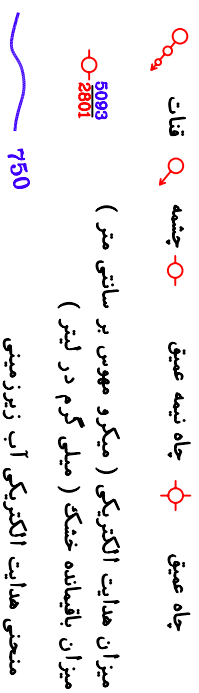 قنات
چشمه
چاه نیمه عمیق
چاه عمیق
5093
2801
میزان هدایت الکتریکی ( میکرو مهوس بر سانتی متر )
میزان باقیمانده خشک ( میلی گرم در لیتر )
750
منحنی هدایت الکتریکی آب زیرزمینی